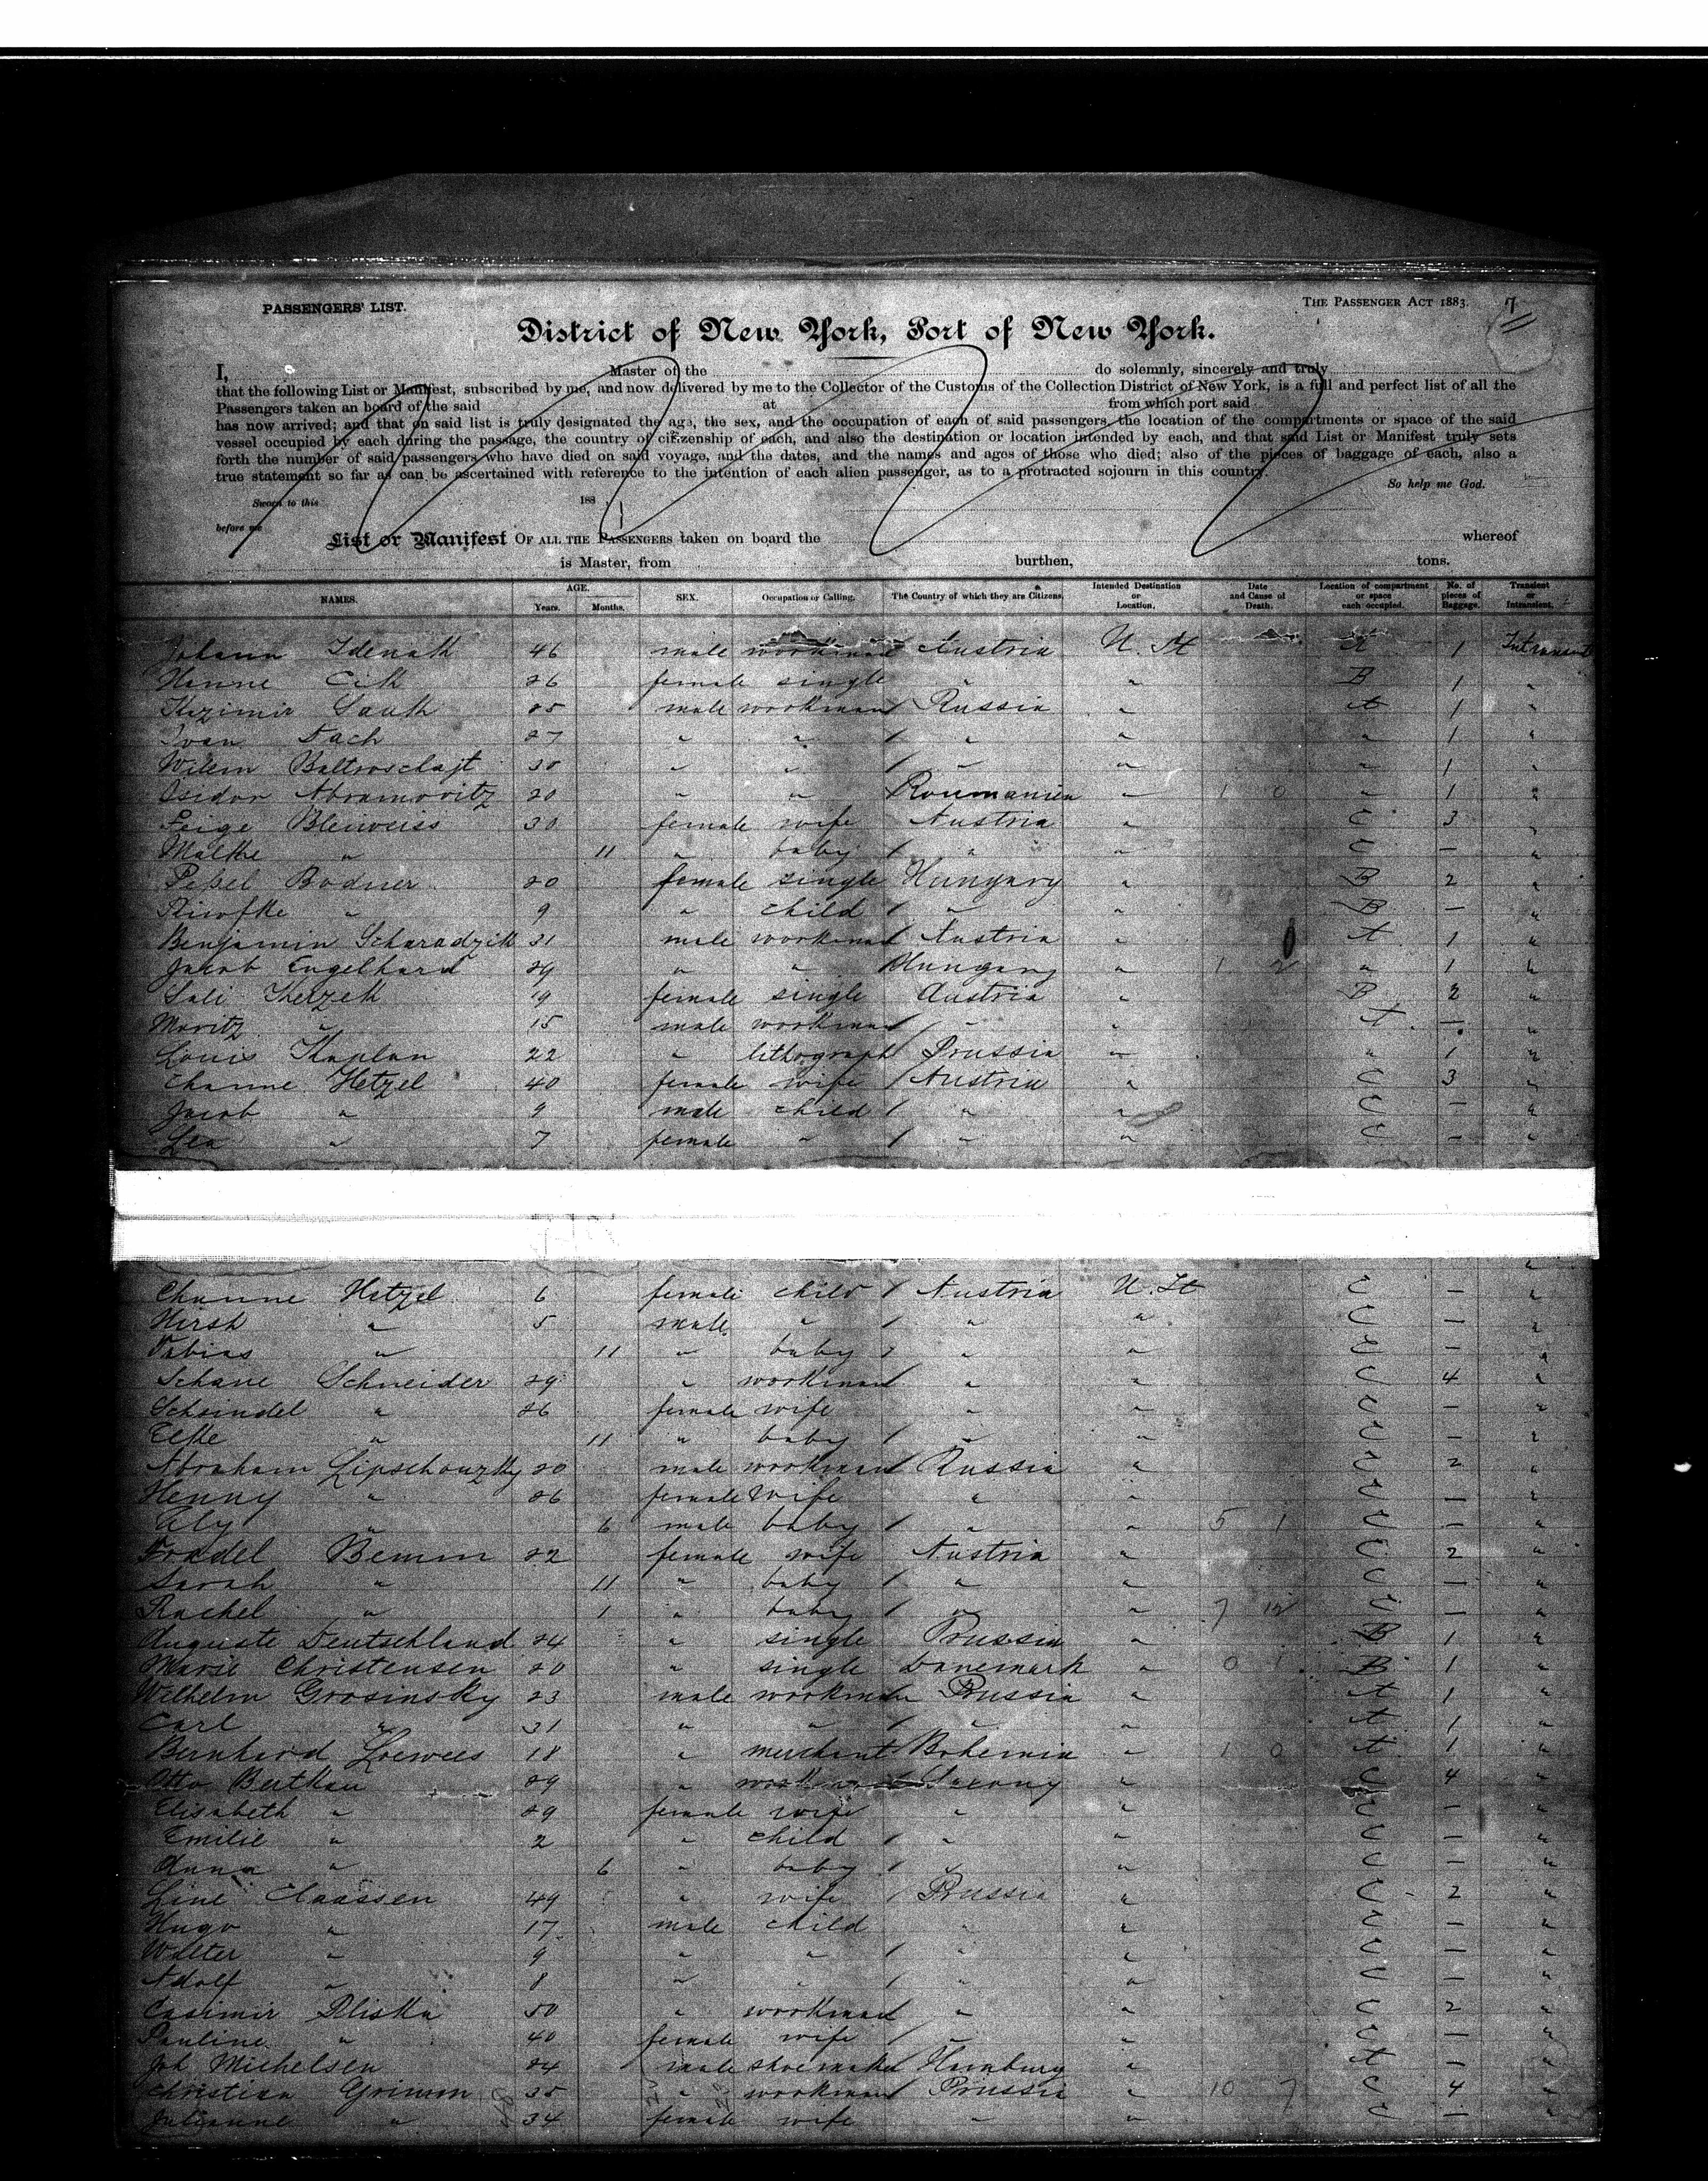 PASSENGERS' LIST.
THE PASSENGER ACT 1883.
7
District of New York, Port of New York.
I, Master of the do solemnly, sincerely and truly
that the following List or Manifest, subscribed by me, and now delivered by me to the Collector of the Customs of the Collection District of New York, is a full and perfect list of all the
Passengers taken an board of the said at from which port said
has now arrived; and that on said list is truly designated the age, the sex, and the occupation of each of said passengers, the location of the compartments or space of the said
vessel occupied by each during the passage, the country of citizenship of each, and also the destination or location intended by each, and that said List or Manifest truly sets
forth the number of said passengers who have died on said voyage, and the dates, and the names and ages of those who died; also of the pieces of baggage of each, also a
true statement so far as can be ascertained with reference to the intention of each alien passenger, as to a protracted sojourn in this country.
So help me God.
Sworn to this 188
before me
List or Manifest OF ALL THE PASSENGERS taken on board the whereof
is Master, from burthen, tons.
NAMES. AGE. Years. Months. SEX. Occupation or Calling. The Country of which they are Citizens. Intended Destination or Location. Date and Cause of Death. Location of compartment or space each occupied. No. of pieces of Baggage. Transient or Intransient.
Johann 46 male workman Austria U. St A 1
Hanne Cik 26 female single " " B 1 "
Kazimir 25 male workman Russia " A 1 "
Ivan 27 " " " " " 1 "
30 " " " " " 1 "
Isidor Abramovitz 20 " " Roumanien " 1 0 " 1 "
Feige Bleiweiss 30 female wife Austria " C 3 "
Malke " 11 " baby " " C — "
Pepel Bodner 20 female single Hungary " B 2 "
Riwfke " 9 " child " " B — "
Benjamin Scharadzik 31 male workman Austria " A 1 "
Jacob Engelhard 29 " " Hungary " 1 2 " 1 "
Sali 19 female single Austria " B 2 "
Moritz " 15 male workman " " A — "
Louis Kaplan 22 " lithograph Prussia " " 1 "
Channe Hetzel 40 female wife Austria " C 3 "
Jacob " 9 male child " " C — "
Lea " 7 female " " " C — "
Channe Hetzel 6 female child Austria U. St C — "
Hirsh " 5 male " " " C — "
Tobias " 11 " baby " " C — "
Schane Schneider 29 " workman " " C 4 "
Scheindel " 26 female wife " " C — "
Elke " 11 " baby " " C — "
Abraham Lipschouzky 20 male workman Russia " C 2 "
Henny " 26 female wife " " C — "
" 6 male baby " " 5 1 C — "
Fradel 22 female wife Austria " C 2 "
Sarah " 11 " baby " " C — "
Rachel " 1 " baby " " 7 12 C — "
Auguste Deutschland 24 " single Prussia " B 1 "
Marie Christensen 20 " single Danemark " 0 1 B 1 "
Wilhelm Grosinsky 23 male workman Prussia " A 1 "
Carl " 31 " " " " A 1 "
Bernhard Loewees 18 " merchant Bohemia " 1 0 A 1 "
Otto Bertkau 29 " workman Saxony " C 4 "
Elisabeth " 29 female wife " " C — "
Emilie " 2 " child " " C — "
Anna " 6 " baby " " C — "
Line Claassen 49 " wife Prussia " C 2 "
Hugo " 17 male child " " C — "
Walter " 9 " " " " C — "
Adolf " 8 " " " " C — "
Casimir Pliska 50 " workman " " C 2 "
Pauline " 40 female wife " " C — "
Joh Michelsen 24 male shoemaker Hamburg " A — "
Christian Grimm 35 " workman Prussia " 10 7 C 4 "
Julianne " 34 female wife " " C — "